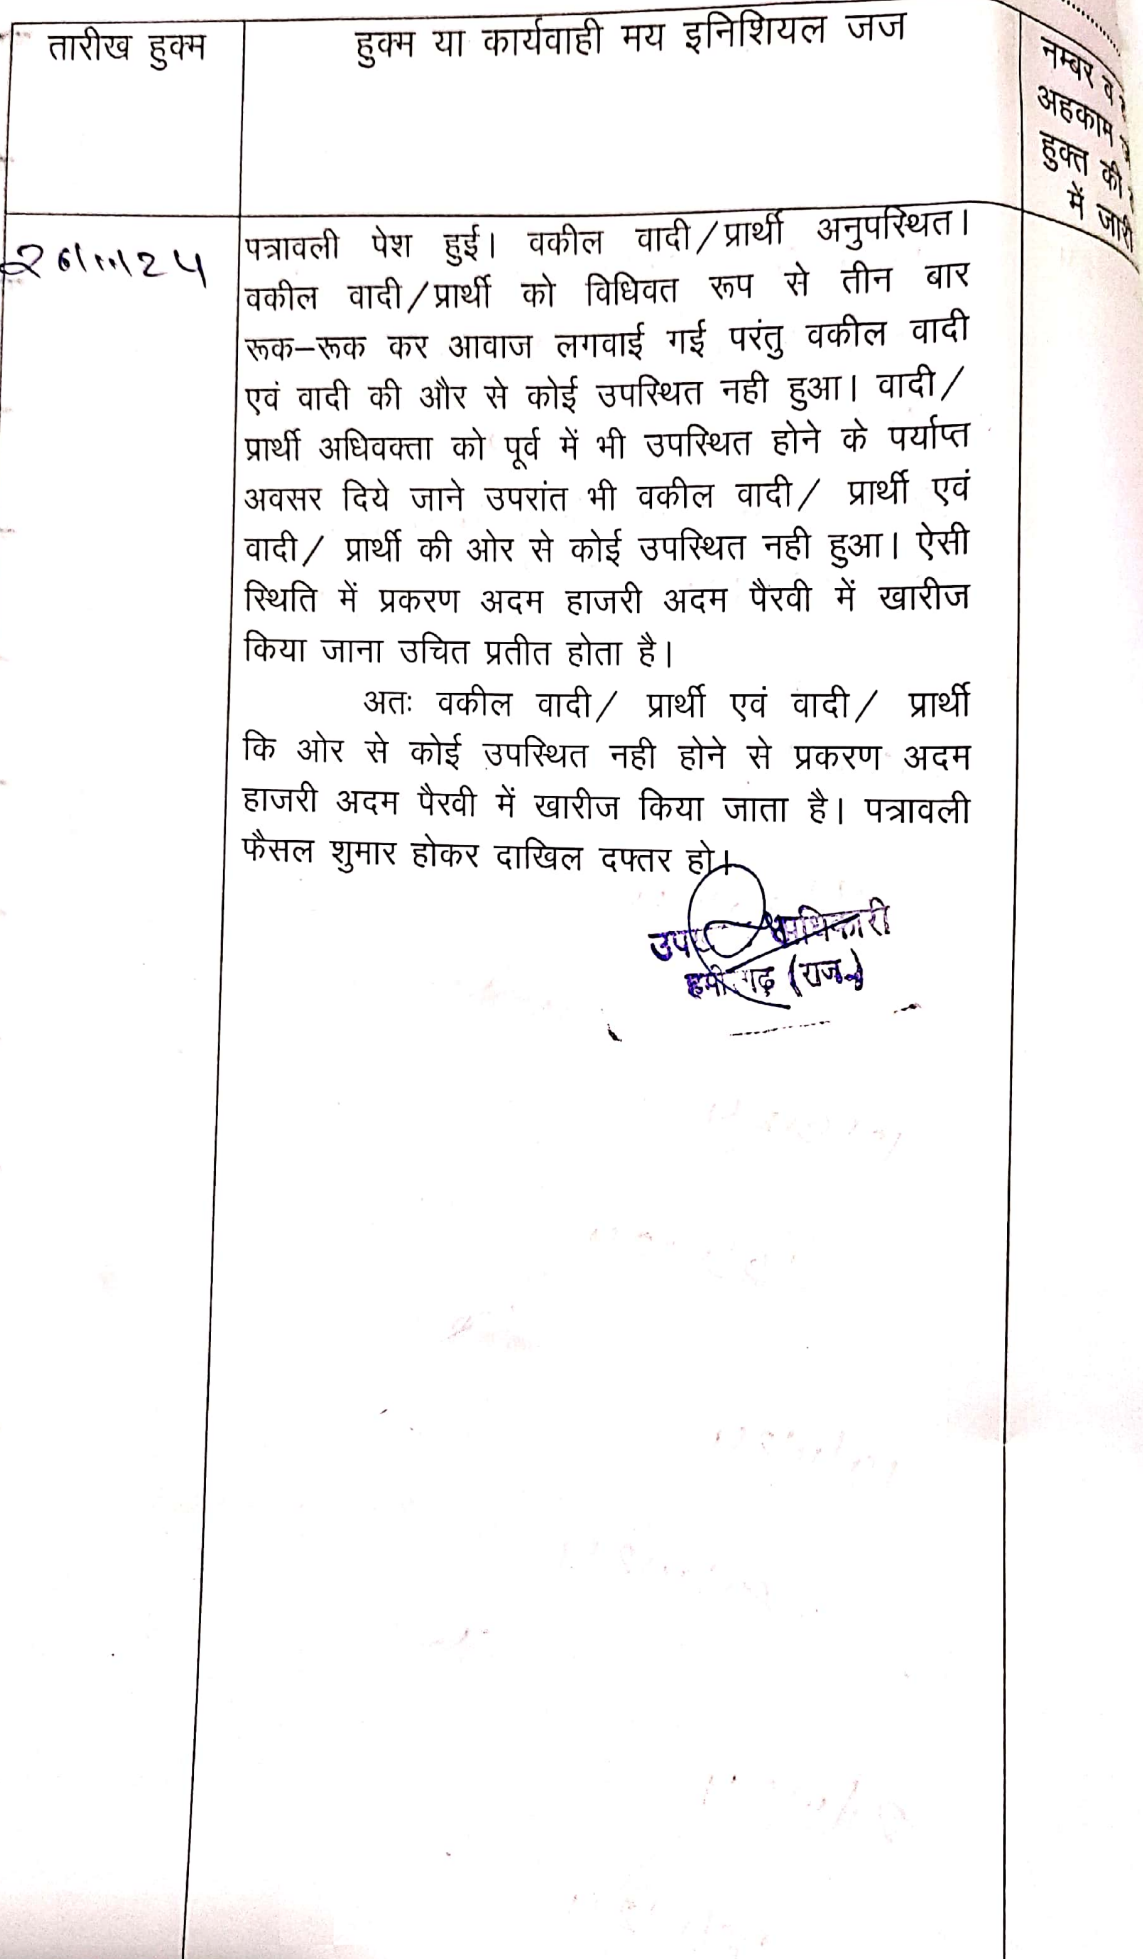 तारीख हुक्म
हुक्म या कार्यवाही मय इनिशियल जज
नम्बर व
अहकाम
हुक्त की
में जारी
26/11/24
पत्रावली पेश हुई। वकील वादी/प्रार्थी अनुपस्थित।
वकील वादी/प्रार्थी को विधिवत रूप से तीन बार
रूक-रूक कर आवाज लगवाई गई परंतु वकील वादी
एवं वादी की और से कोई उपस्थित नही हुआ। वादी/
प्रार्थी अधिवक्ता को पूर्व में भी उपस्थित होने के पर्याप्त
अवसर दिये जाने उपरांत भी वकील वादी/ प्रार्थी एवं
वादी/ प्रार्थी की ओर से कोई उपस्थित नही हुआ। ऐसी
स्थिति में प्रकरण अदम हाजरी अदम पैरवी में खारीज
किया जाना उचित प्रतीत होता है।
अतः वकील वादी/ प्रार्थी एवं वादी/ प्रार्थी
कि ओर से कोई उपस्थित नही होने से प्रकरण अदम
हाजरी अदम पैरवी में खारीज किया जाता है। पत्रावली
फैसल शुमार होकर दाखिल दफ्तर हो।
(राज.)